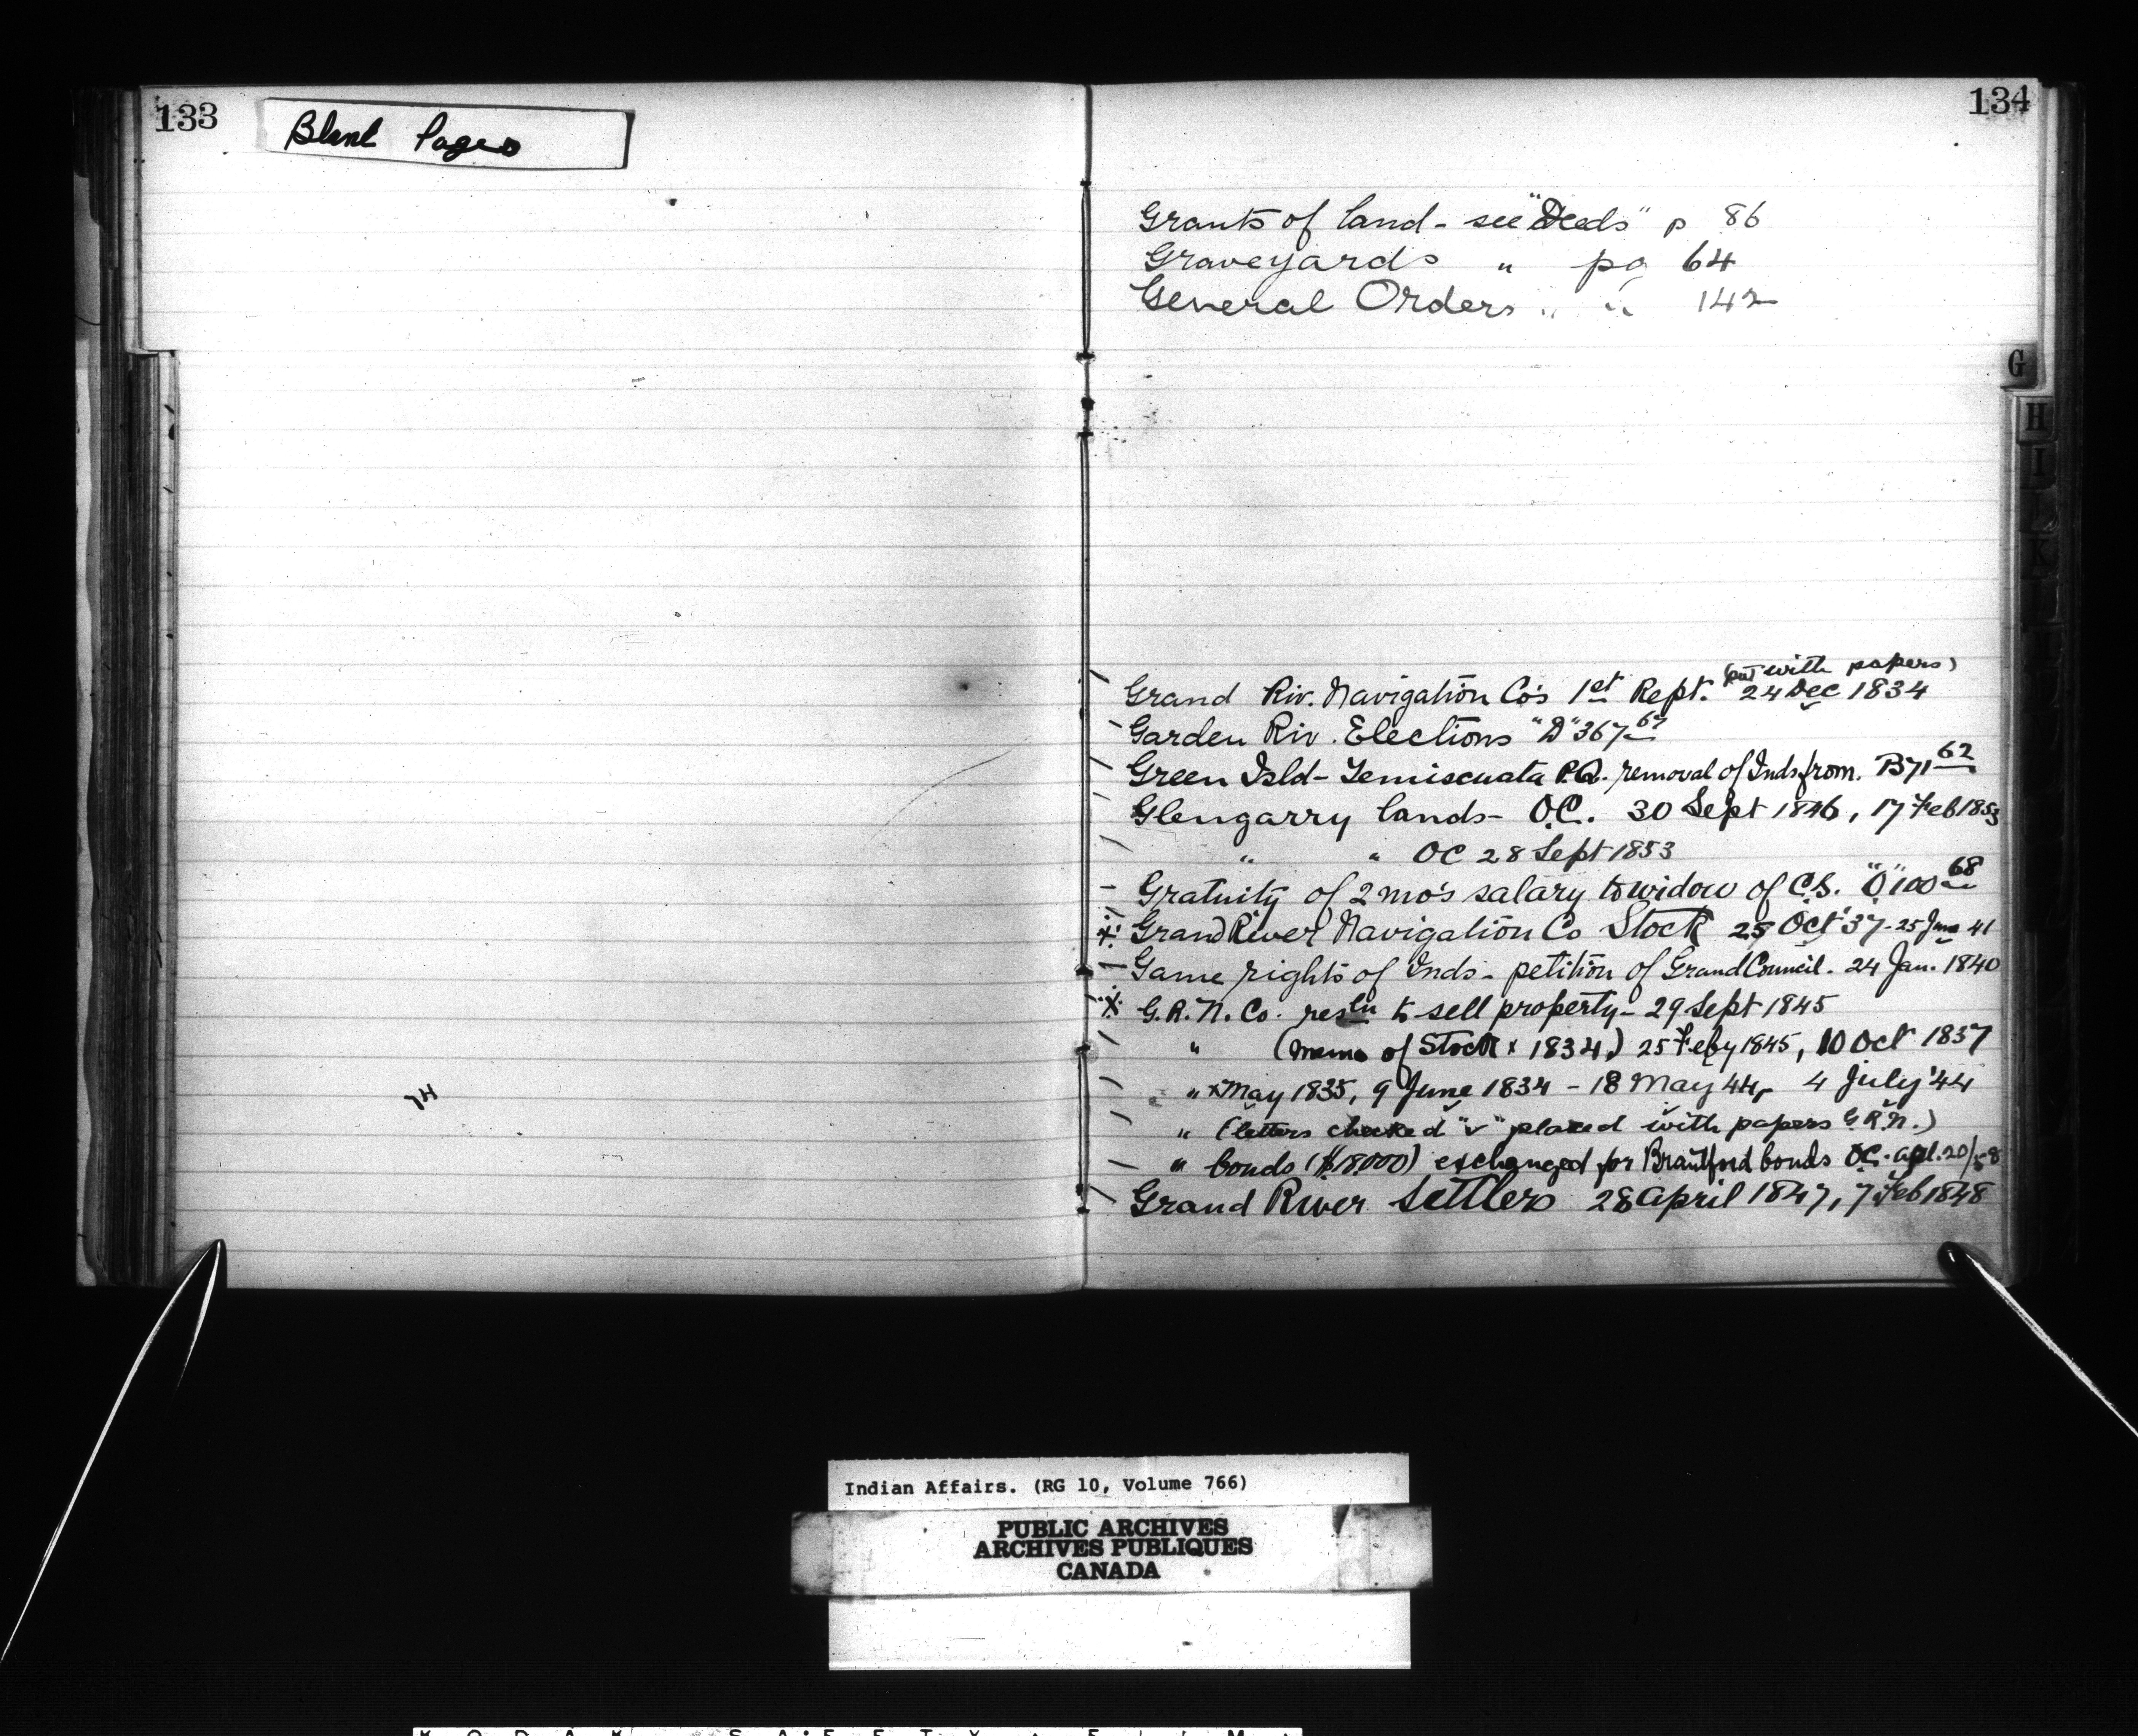 133
Blank Pages
74
134
Grants of land - see "Deeds" p 86
Graveyards " pa 64
General Orders " " 142
G
H
I
K
(put with papers)
Grand Riv. Navigation Co's 1st Rept. 24 Dec 1834
Garden Riv. Elections "D" 367 67
Green Isld - Temiscuata P.Q. removal of Inds from. B71 62
Glengarry lands - O.C. 30 Sept 1846, 17 Feb 1853
" " OC 28 Sept 1853
Gratuity of 2 mo's salary to widow of C.S. "O" 100 68
Grand River Navigation Co Stock 25 Oct '37 - 25 June 41
Game rights of Inds - petition of Grand Council - 24 Jan. 1840
G.R.N. Co. resln to sell property - 29 Sept 1845
" (Memo of Stock x 1834) 25 Feby 1845, 10 Oct 1837
" x May 1835, 9 June 1834 - 18 May 44, 4 July '44
" (letters checked "v" placed with papers G.R.N.)
" bonds ($18,000) exchanged for Brantford bonds OC. apl. 20/58
Grand River Settlers 28 April 1847, 7 Feb 1848
Indian Affairs. (RG 10, Volume 766)
PUBLIC ARCHIVES
ARCHIVES PUBLIQUES
CANADA
KODAK SAFETY FILM